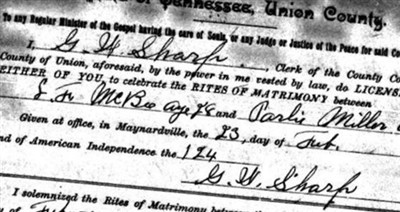 of Tennessee, Union County.
To any Regular Minister of the Gospel having the care of Souls, or any Judge or Justice of the Peace for said Co
I, G W Sharp, Clerk of the County Co
County of Union, aforesaid, by the power in me vested by law, do LICENS
EITHER OF YOU, to celebrate the RITES OF MATRIMONY between
E. Fr McBee age 78 and Parlie Miller
Given at office, in Maynardville, the 23, day of Feb.
nd of American Independence the 124
G. W. Sharp
I solemnized the Rites of Matrimony between the
y of Feb